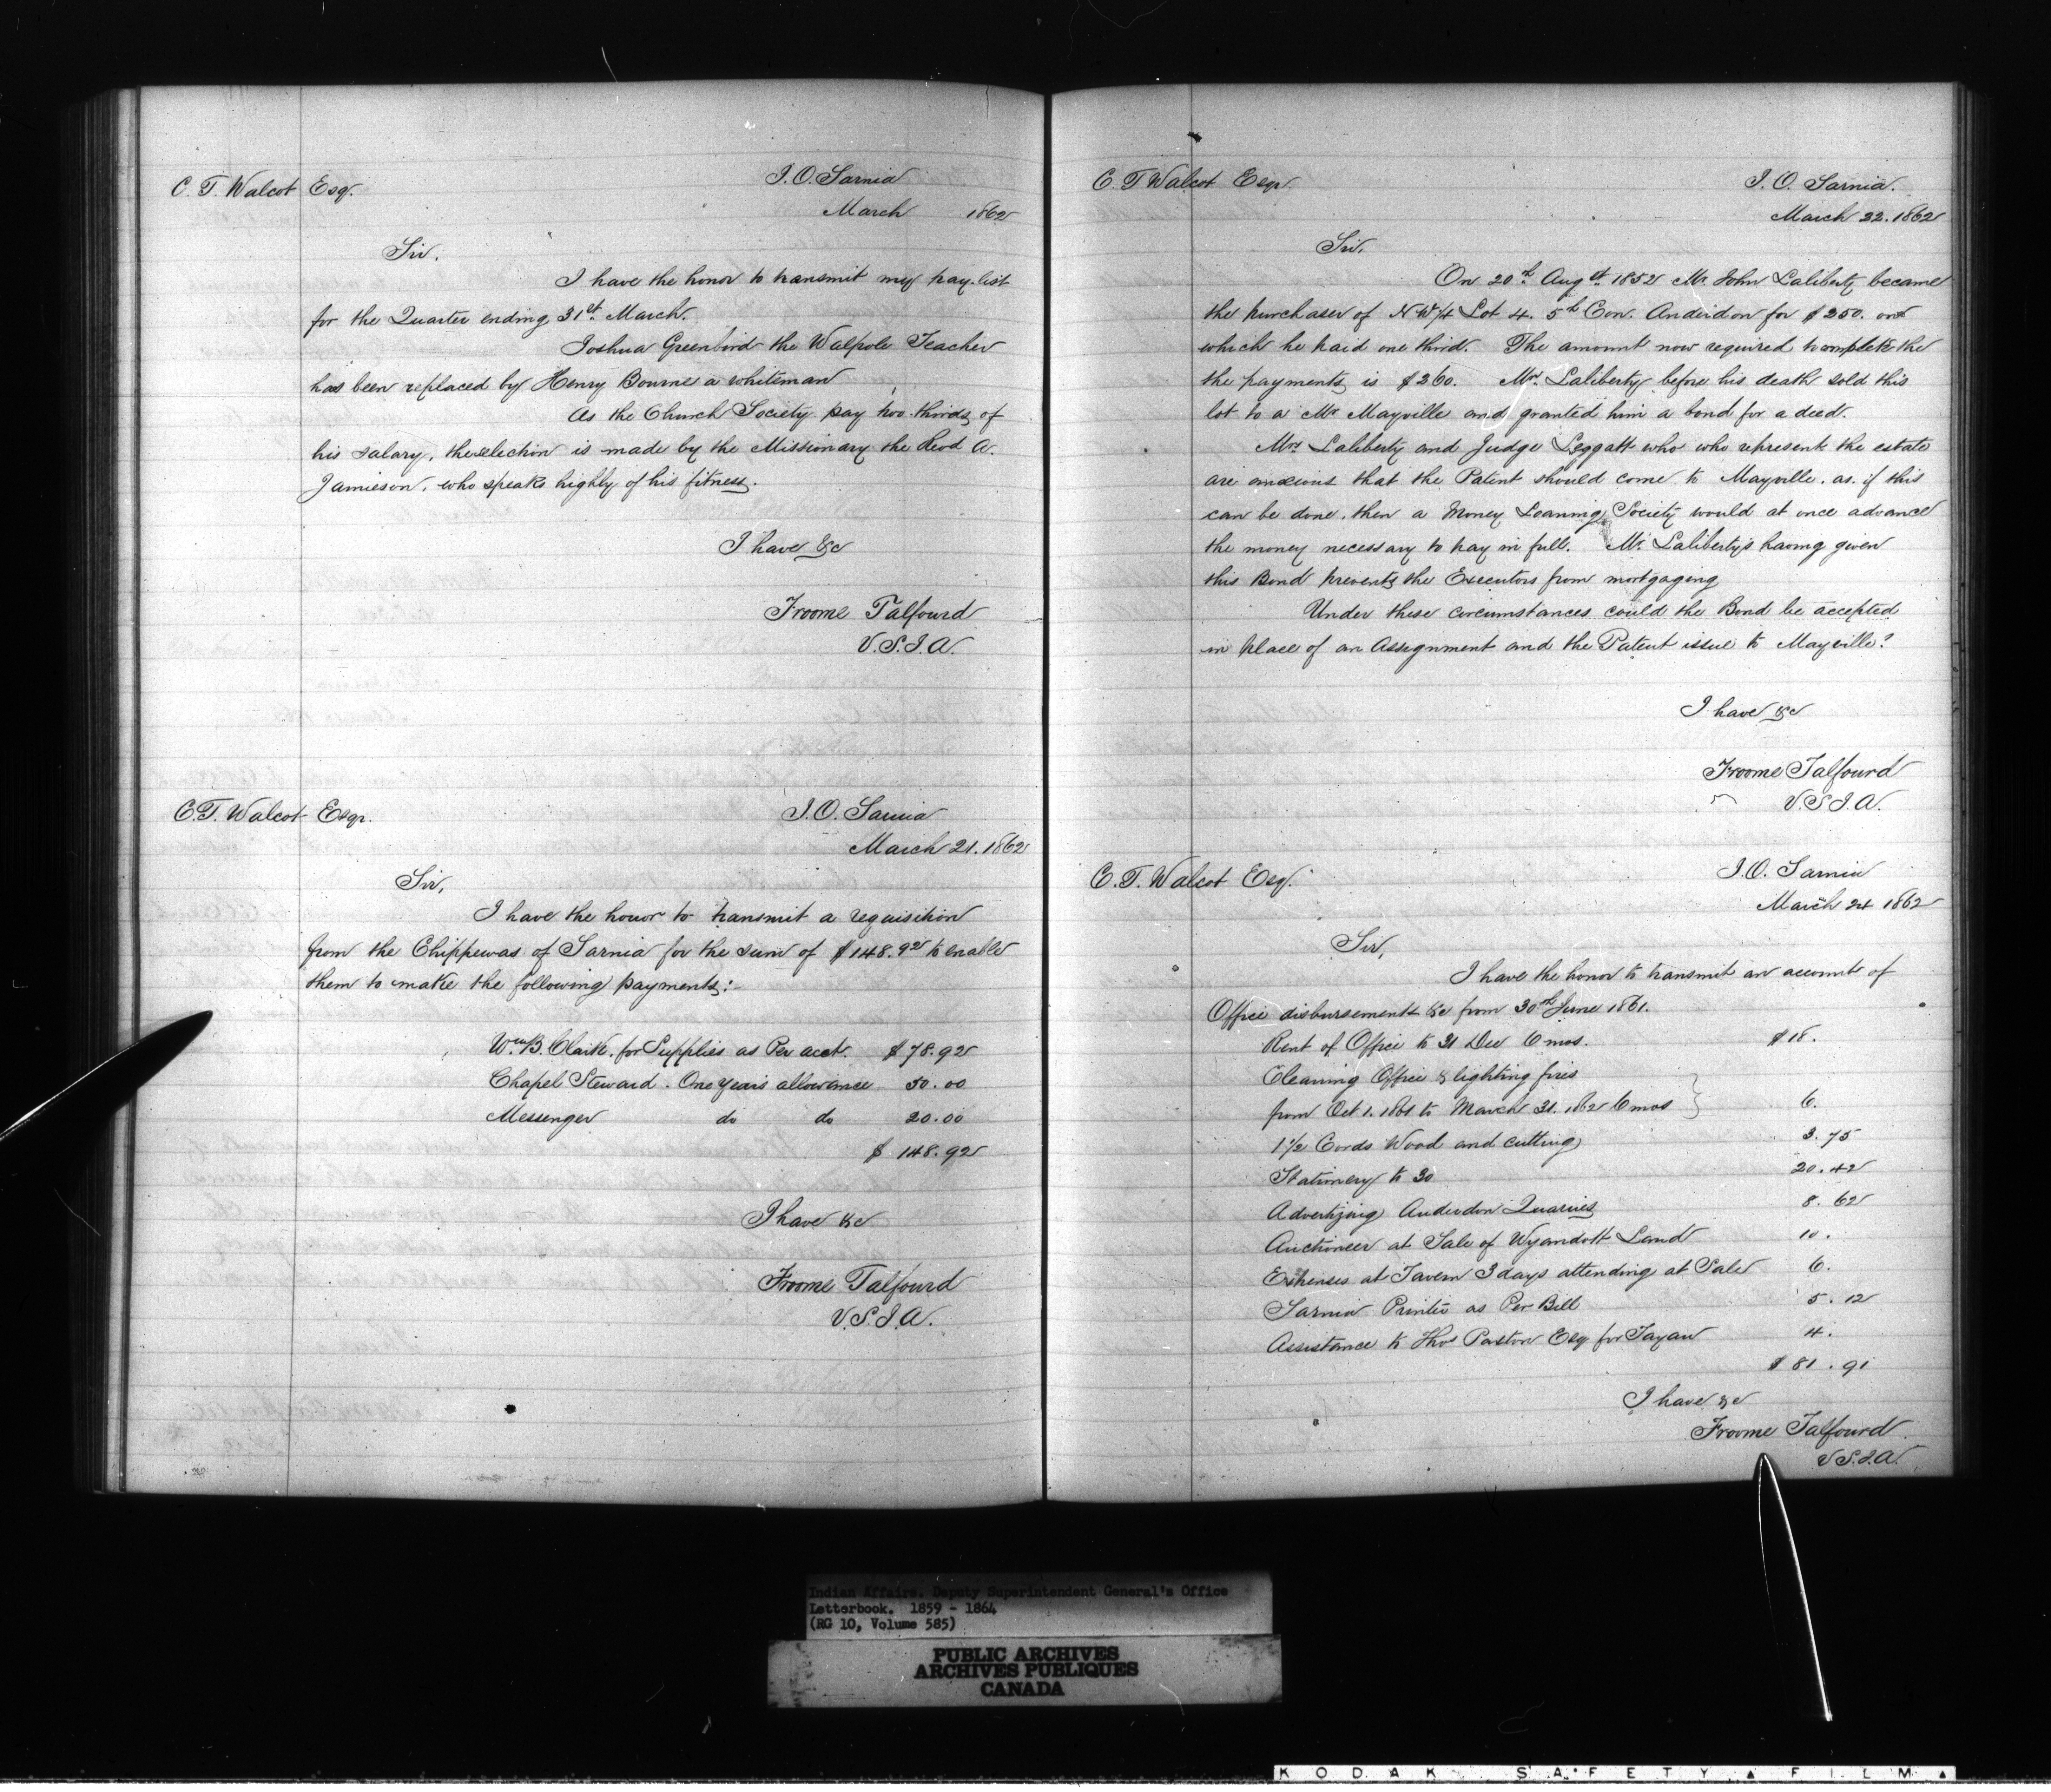 C. T. Walcot Esqr.
I. O. Sarnia
March 1862
Sir,
I have the honor to transmit my pay-list
for the Quarter ending 31st March.
Joshua Greenbird the Walpole Teacher
has been replaced by Henry Bourne a whiteman
As the Church Society pay two-thirds of
his salary, the selection is made by the Missionary the Revd A.
Jamieson, who speaks highly of his fitness.
I have &c
Froome Talfourd
V.S.I.A.
C. T. Walcot Esqr.
I. O. Sarnia
March 21. 1862
Sir,
I have the honor to transmit a requisition
from the Chippewas of Sarnia for the sum of $148.92 to enable
them to make the following payments:-
Wm B. Clark. for Supplies as Per acct. $78.92
Chapel Steward. One years allowance 50.00
Messenger do do 20.00
$ 148.92
I have &c
Froome Talfourd
V.S.I.A.
C. T Walcot Esqr.
I. O. Sarnia.
March 22. 1862
Sir,
On 20th Augst 1852 Mr John Laliberty became
the purchaser of N W/4 Lot 4. 5th Con. Anderdon for $250. on
which he paid one third. The amount now required to complete the
the payments is $260. Mr. Laliberty before his death sold this
lot to a Mr Mayville and granted him a bond for a deed.
Mrs Laliberty and Judge Leggatt who who represent the estate
are anxious that the Patent should come to Mayville. as. if this
can be done, then a Money Loaning Society would at once advance
the money necessary to pay in full. Mr. Laliberty's having given
this Bond prevents the Executors from mortgaging
Under these circumstances could the Bond be accepted
in place of an Assignment and the Patent issue to Mayville?
I have &c
Froome Talfourd
V.S I.A.
C. T. Walcot Esqr.
I. O. Sarnia
March 24 1862
Sir,
I have the honor to transmit an account of
Office disbursements &c from 30th June 1861.
Rent of Office to 31 Dec 6 mos. $18.
Cleaning Office & lighting fires
from Oct 1. 1861 to March 31. 1862 6 mos } 6.
1 1/2 Cords Wood and cutting 3.75
Stationery to 30 20.42
Advertizing Anderdon Quarries 8.62
Auctioneer at Sale of Wyandott Land 10.
Expenses at Tavern 3 days attending at Sale 6.
Sarnia Printer as Per Bill 5.12
Assistance to Thos Paxton Esq for 4.
$ 81.91
I have &c
Froome Talfourd
V S.I.A.
Indian Affairs. Deputy Superintendent General's Office
Letterbook. 1859 - 1864
(RG 10, Volume 585)
PUBLIC ARCHIVES
ARCHIVES PUBLIQUES
CANADA
KODAK SAFETY FILM